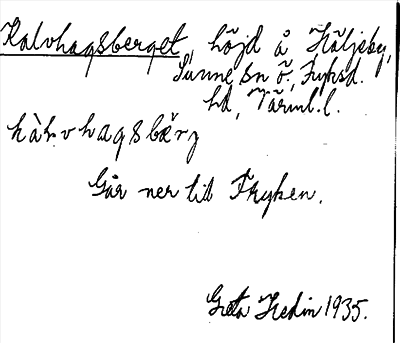 Kalvhagsberget, höjd å Häljeby,
Sunne sn ö, Fryksd.
hd, Värml. l.
Går ner till Fryken.
Greta Hedin 1935.